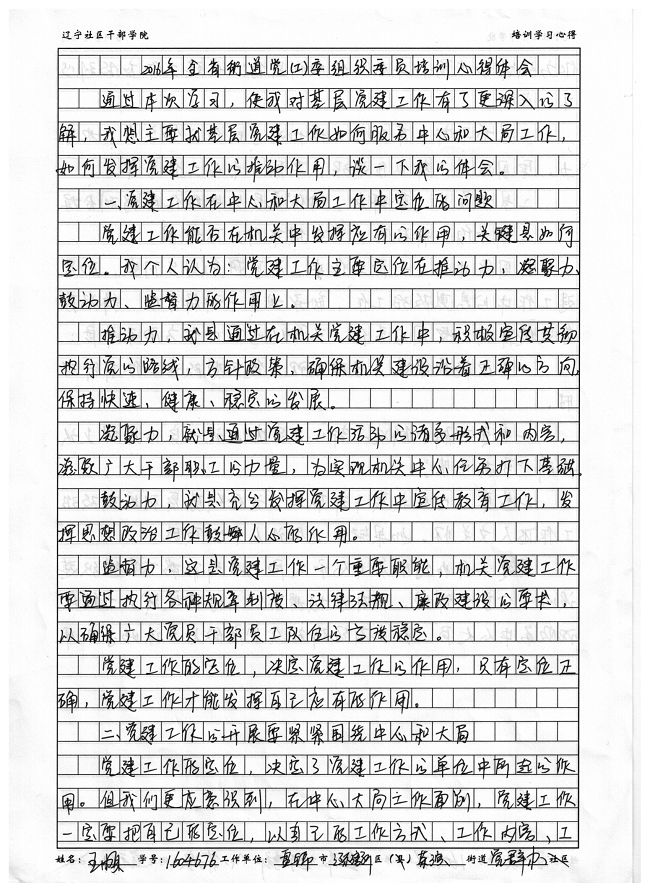 辽宁社区干部学院 培训学习心得
2016年全省街道党(工)委组织委员培训心得体会
通过本次学习，使我对基层党建工作有了更深入的了
解，我想主要就基层党建工作如何服务中心和大局工作，
如何发挥党建工作的推动作用，谈一下我的体会。
一、党建工作在中心和大局工作中定位的问题
党建工作能否在机关中发挥应有的作用，关键是如何
定位。我个人认为：党建工作主要定位在推动力、凝聚力、
鼓动力、监督力的作用上。
推动力，就是通过在机关党建工作中，积极宣传贯彻
执行党的路线，方针政策，确保机关建设沿着正确的方向，
保持快速、健康、稳定的发展。
凝聚力，就是通过党建工作活动的诸多形式和内容，
凝聚广大干部职工的力量，为实现机关中心任务打下基础。
鼓动力，就是充分发挥党建工作中宣传教育工作，发
挥思想政治工作鼓舞人心的作用。
监督力，这是党建工作一个重要职能，机关党建工作
要通过执行各种规章制度、法律法规、廉政建设的要求，
以确保广大党员干部员工队伍的高效稳定。
党建工作的定位，决定党建工作的作用，只有定位正
确，党建工作才能发挥自己应有的作用。
二、党建工作的开展要紧紧围绕中心和大局
党建工作的定位，决定了党建工作的单位中所起的作
用。但我们更应意识到，在中心大局工作面前，党建工作
一定要把自己的定位，以自己的工作方式、工作内容、工
姓名： 学号：1604676 工作单位： 市 区（县） 街道 党群办 社区